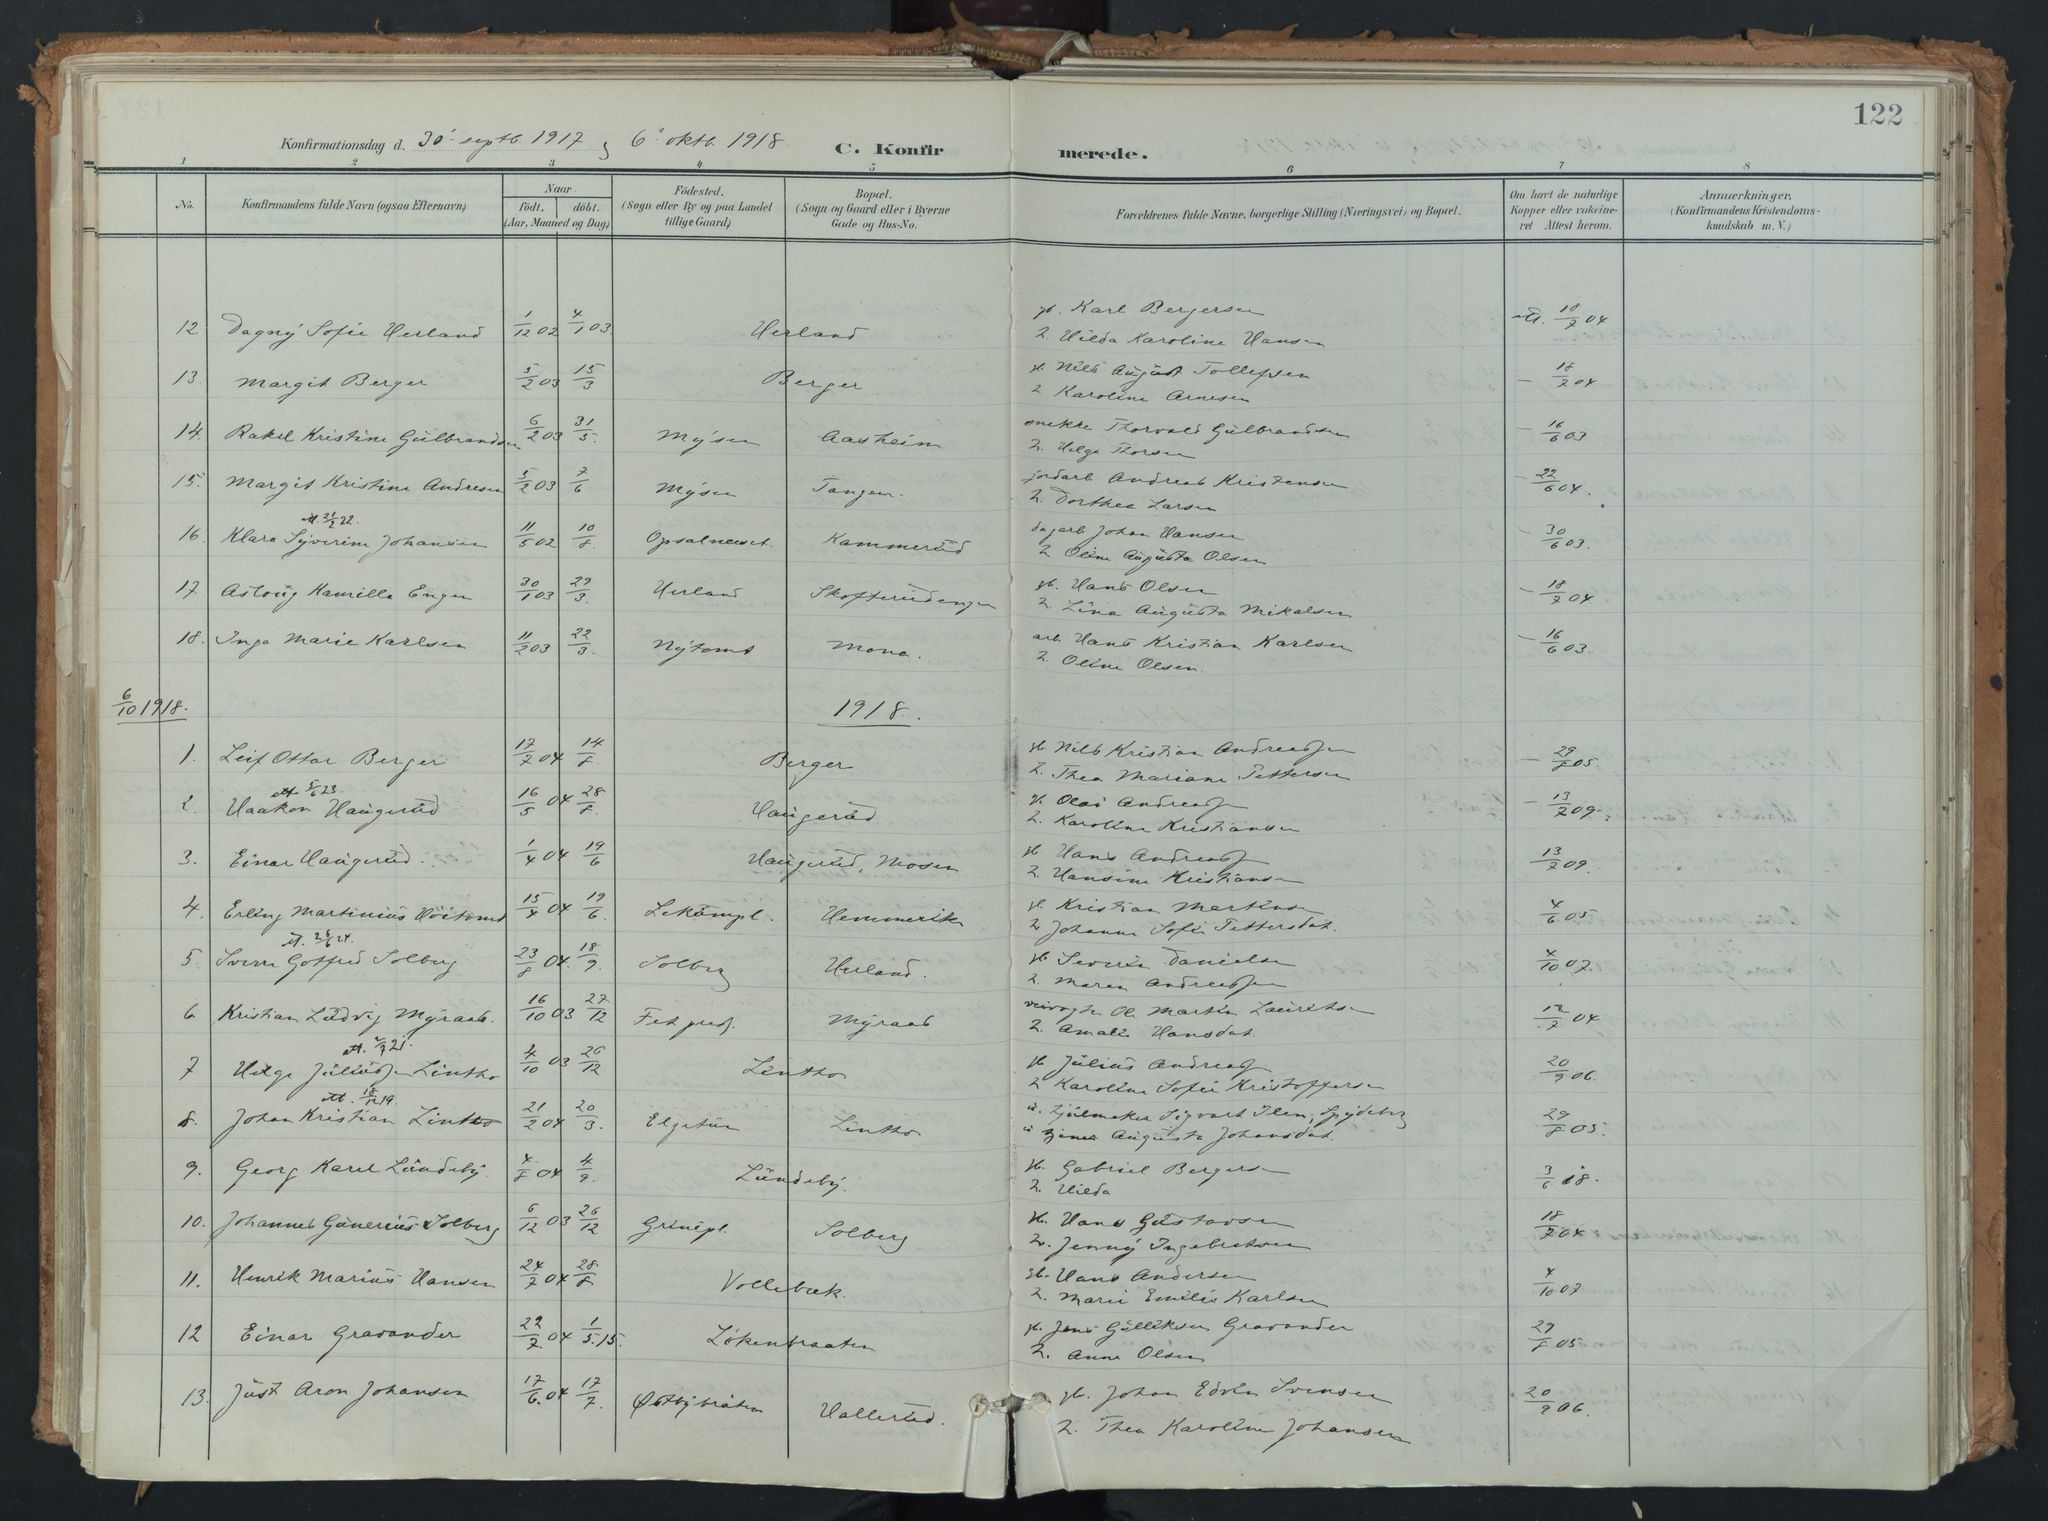 122
Konfirmationsdag d. 30' septb. 1917 og 6' oktb. 1918 C. Konfirmerede.
1 2 3 4 5 6 7 8
No. Konfirmandens fulde Navn (ogsaa Efternavn)
Naar
født. døbt.
(Aar, Maaned og Dag)
Fødested.
(Sogn eller By og paa Landet
tillige Gaard)
Bopæl.
(Sogn og Gaard eller i Byerne
Gade og Hus-No.
Forældrenes fulde Navne, borgerlige Stilling (Næringsvei) og Bopæl.
Om havt de naturlige
Kopper eller vakcine-
ret Attest herom.
Anmærkninger.
(Konfirmandens Kristendoms-
kundskab m. V.)
12. Dagny Sofie Herland 1/12 02 4/1 03 Herland gb. Karl Bergersen att. 18/7 04
2. Hilda Karoline Hansen
13. Margit Berger 5/2 03 15/3 Berger gb. Nils August Tollefsen – 18/7 04
2. Karoline Arnesen
14. Rakel Kristine Gulbrandsen 6/2 03 31/5. Mysen Aasheim snekke Thorvald Gulbrandsen – 16/6 03
2. Helga Thorsen
15. Margit Kristine Andresen 5/2 03 7/6 Mysen Tangen. jordarb Andreas Kristensen – 22/6 04.
2. Dorthea Larsen
16. Klara Syverine Johansen 11/5 02 10/8 Opsalneeset. Kammerud dagarb Johan Hansen – 30/6 03.
2. Oline Augusta Olsen
17. Astoug Kamilla Engen 30/1 03 29/3. Herland Skofterudengen gb. Hans Olsen – 18/7 04
2. Lina Augusta Mikalsen
18. Inga Marie Karlsen 11/2 03 22/3. Nytomt Mona. arb. Hans Kristian Karlsen – 16/6 03.
2. Oline Olsen.
6/10 1918. 1918.
1. Leif Ottar Berger 17/7 04 14/8. Berger gb. Nils Kristian Andreassen – 29/8 05.
2. Thea Mariane Pettersen
att 5/6 23
2. Haakon Haugerud 16/5 04 28/8. Haugerud gb. Olai Andreassen – 13/7 09.
2. Karoline Kristiansen
3. Einar Haugerud. 1/4 04 19/6 Haugerud, Mosen gb. Hans Andreassen 13/7 09.
2. Hansine Kristiansen
4. Erling Martinius Høitomt 15/4 04 19/6. Lekumpl. Hemmerik gb. Kristian Martinsen 4/6 05
2. Johanne Sofie Pettersdat.
5. Sverre Gotfred Solberg 23/8 04. 18/9 Solberg Herland. gb. Severin Danielsen 4/10 07.
2. Maren Andreassen
6 Kristian Ludvig Myraas. 16/10 03 27/12 Fet prest. Myraas veivogter Ole Martin Lauritsen 12/7 04
2. Amalie Hansdat.
7 Helge Juliussen Lintho 4/10 03 26/12 Lintho gb. Julius Andreassen 20/9 06.
2. Karoline Sofie Kristoffersen
att. 18/12 19.
8. Johan Kristian Lintho 21/2 04 20/3. Elgetun Lintho u. hjulmaker Sigvart Ilen, Spydeberg 29/8 05.
u Augusta Johansdat.
9. Georg Karel Lundeby. 4/8 04 4/9. Lundeby. gb. Gabriel Bergersen 3/6 18.
2. Hilda
10. Johannes Gunerius Solberg 6/12 03 26/12 Grinipl. Solberg gb. Hans Gustavsen 18/7 04
2. Jenny Ingebretsen
11. Henrik Marius Hansen 24/7 04 28/8 Vollebæk. gb. Hans Andersen 4/10 07
2. Marie Emilie Karlsen
12 Einar Gravander 22/7. 04 1/5. 15. Løkenbraaten gb. Jens Gulliksen Gravander 29/8 05
2. Anne Olsen
13. Just Aron Johansen 17/6. 04 17/7. Østbybråten Hallerud. gb. Johan Edvin Svensen 20/9 06.
2. Thea Karoline Johansen